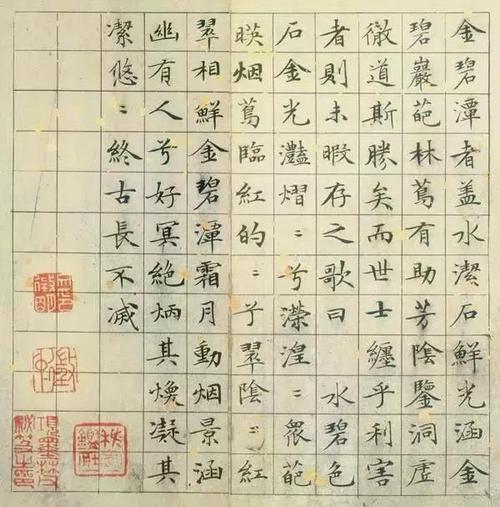 金碧潭者盖水潔石鮮光涵金
碧巖葩林蔦有助芳陰鑒洞虛
徹道斯勝矣而世士纏乎利害
者則未暇存之歌曰 水碧色
石金光灩熠〻兮濙湟〻眾葩
暎烟蔦臨紅的〻兮翠陰〻紅
翠相鮮金碧潭霜月動烟景涵
幽有人兮好冥絶炳其煥凝其
潔悠〻終古長不滅